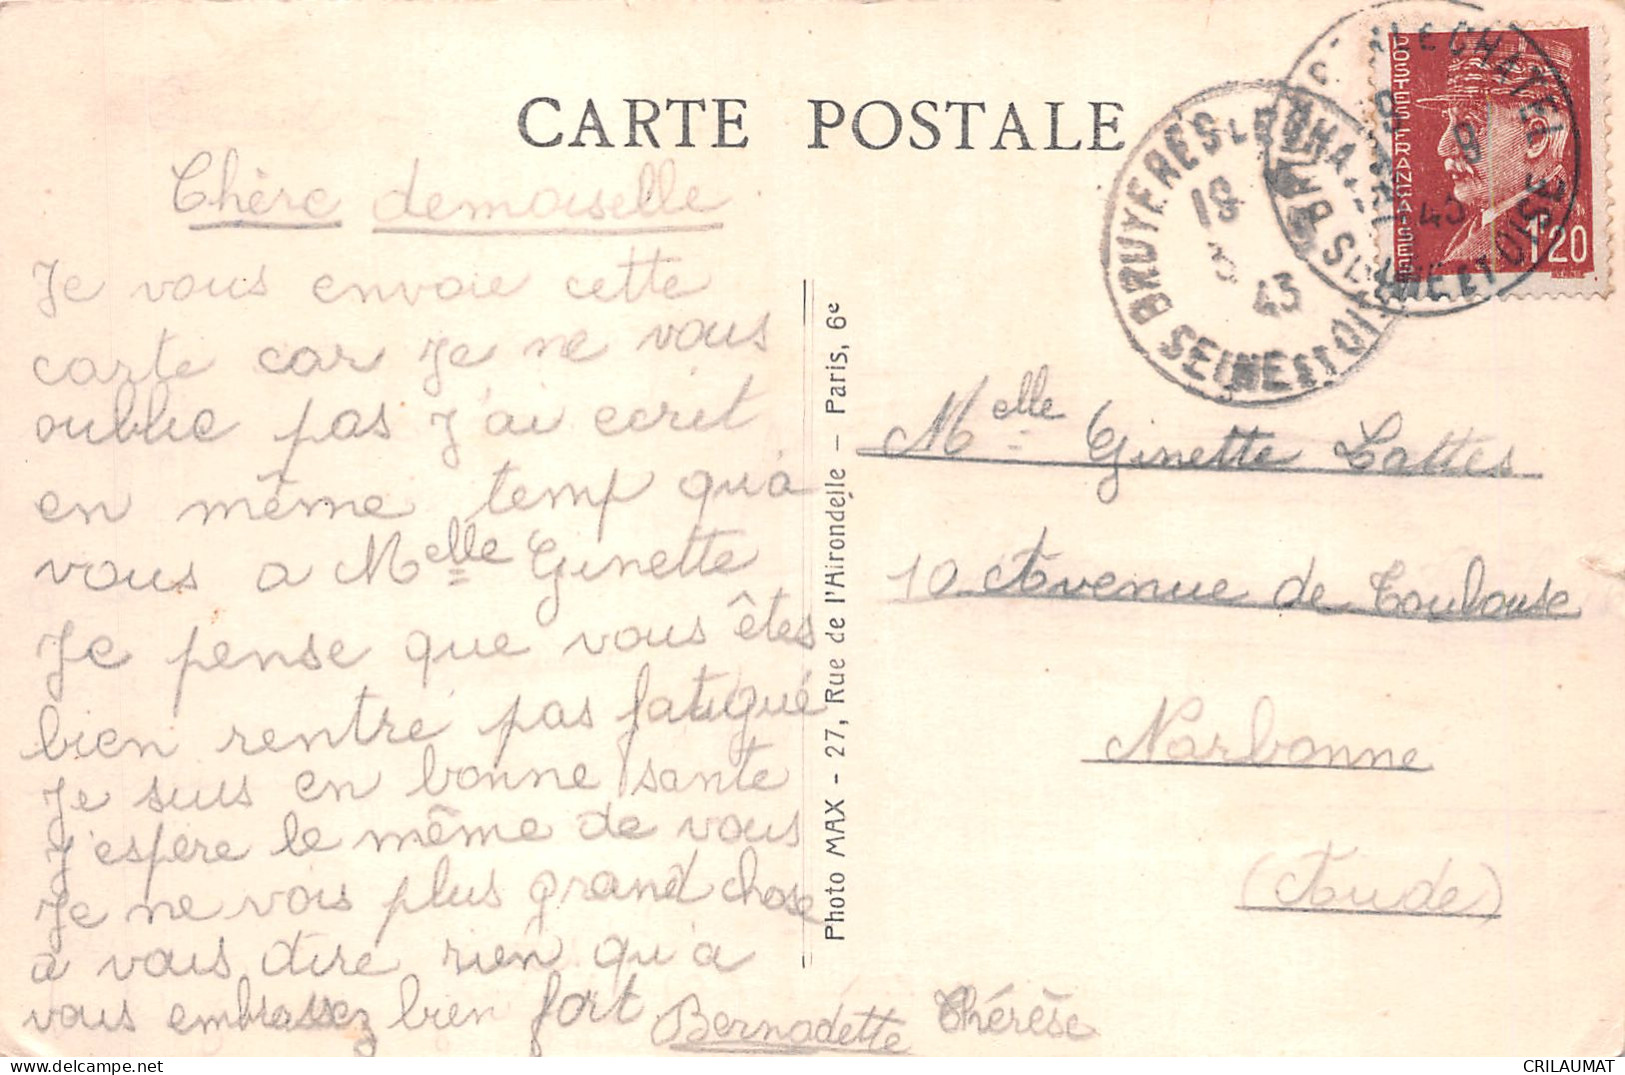 CARTE POSTALE
Chère demoiselle
Je vous envoie cette
carte car Je ne vous
oublie pas J'ai ecrit
en même temp qu'a
vous a Melle Ginette
Je pense que vous êtes
bien rentré pas fatigué
Je suis en bonne sante
J'espère le même de vous
Je ne vois plus grand chose
a vous dire rien qu'a
vous embrassez bien fort
Bernadette Thérèse
Photo MAX - 27, Rue de l'Airondelle - Paris, 6e
BRUYERES LE CHATEL
18
3
43
SEINE ET OISE
LE CHATEL
43
SEINE ET OISE
POSTES FRANÇAISES
1f20
Melle Ginette Lattes
10 Avenue de Toulouse
Narbonne
(Aude)
CRILAUMAT